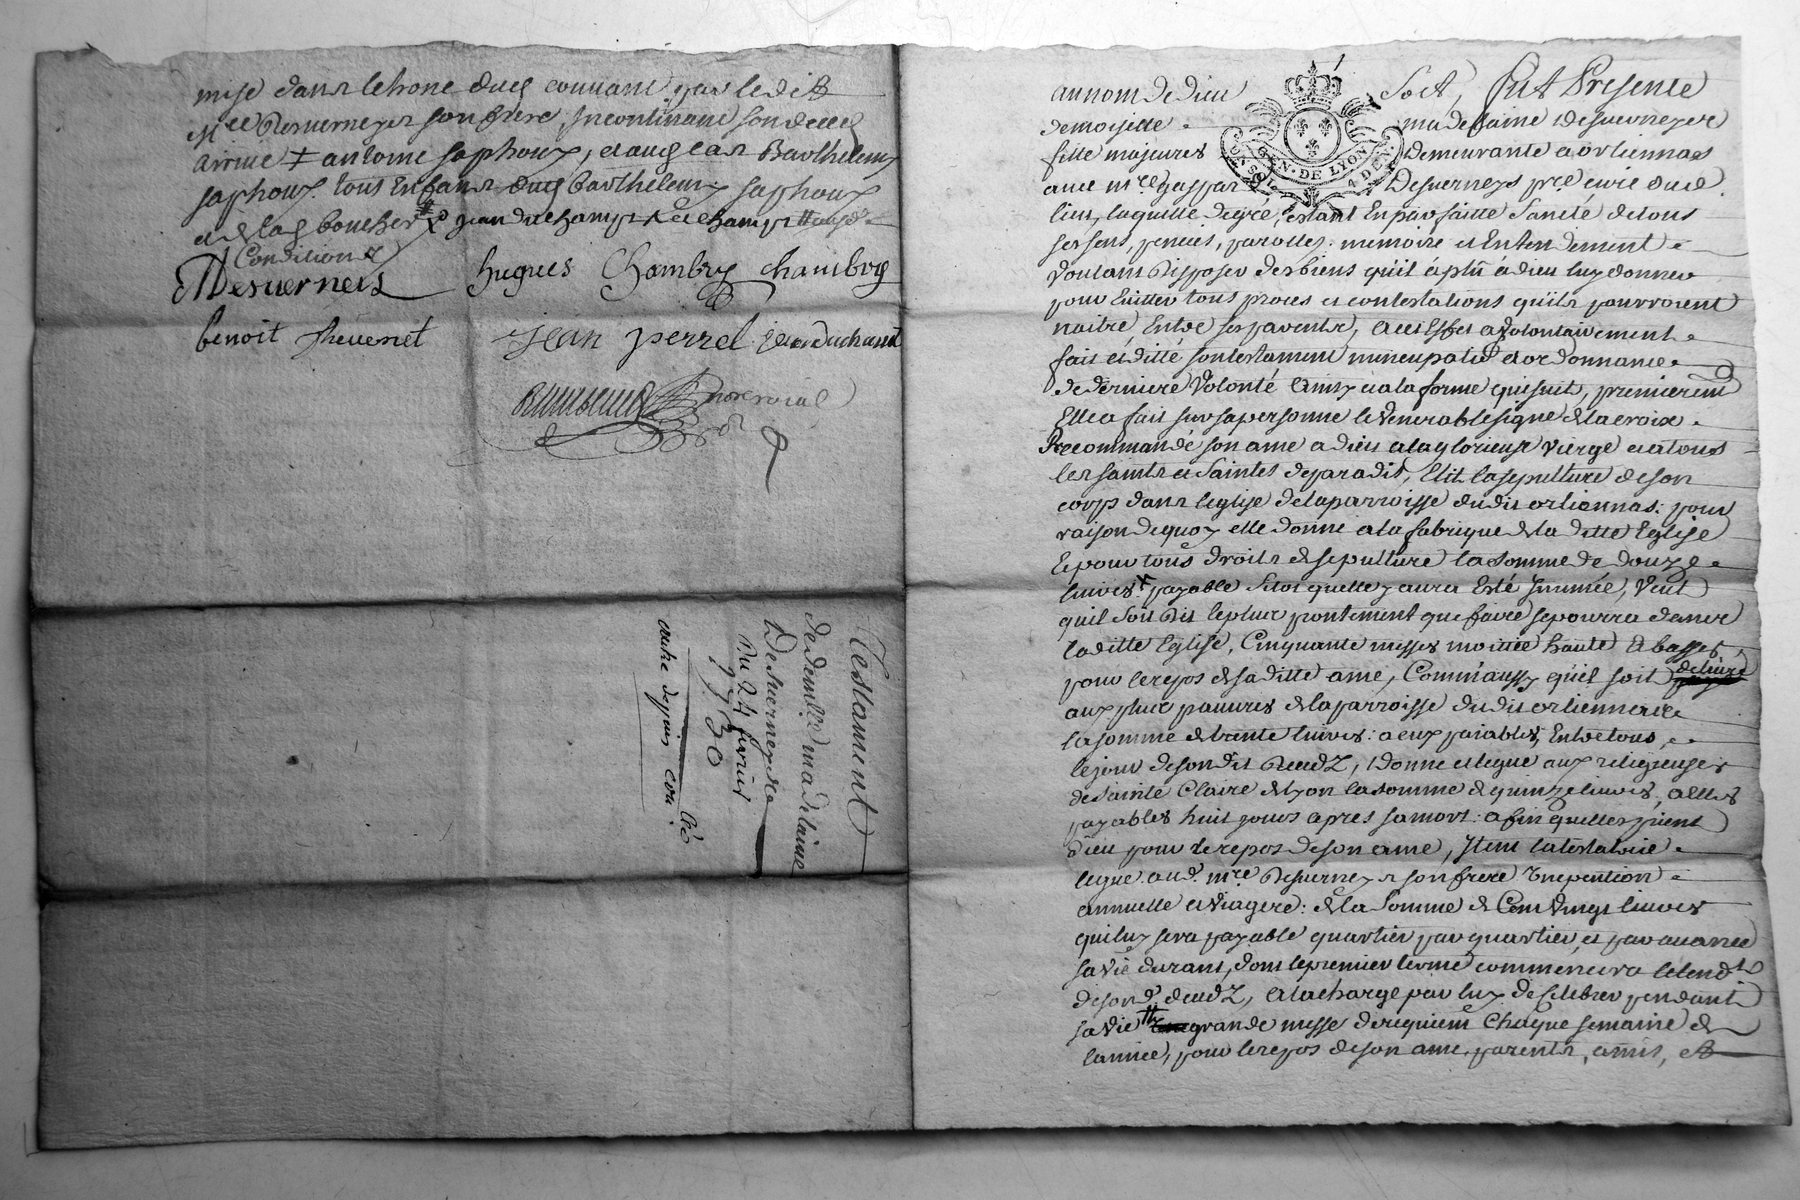 mise dans lehone ducq courant par ledit
Mre Desverneys son frere, Incontinant son decedz
arrivé ‡ antoine saphoux, et aug ean Barthelemy
saphoux tous Enfans dud barthelemy saphoux
jean duchamps
Condition
MDesverneis hugues Chambry chambry
benoit thevenet Jean perrel jean duchant
no.re roial
Testament
de demlle. madelaine
Desverneys
Du 24 fevrier
1730
au nom de dieu Soit, fut Presente
demoiselle madelaine Desverneys
GEN. DE LYON
UN SOL 4 DEN.
fille majeures Demeurante a orliennas
avec mre. gaspar Desverneys pre. curé dud.
lieu, laquelle degré, estant En parfaitte Santé detous
ses sens, pencées, parolles, memoire et Entendement
Voulant Disposer desbiens qu'il a plû a dieu luy donner
pour Eviter tous proces et contestations qu'ils pourroient
naitre Entre ses parents, a cet Effet a volontairement
fait et ditté son testament nuncupatif et ordonnance
de derniere Volonté ainsy et a la forme qui suit, premierement
Elle a fait sur sa personne le venerable signe de la croix
Recommandé son ame a dieu a la glorieuse vierge et a tous
les saints et Saintes de paradit, Elit la sepulture de son
corps dans leglise de la parroisse du dit orliennas: pour
raison de quoy elle donne a la fabrique de la ditte Eglise
Et pour tous droits de sepulture la somme de douze
livres payable sitot quelle y aura Esté Inumée, Veut
quil soit Dit le plus pontement que faire se pourra dans
la ditte Eglise, Cinquante messes moitiée haute Et basses
pour le repos de sa ditte ame, Comm'aussy qu'il soit delivré
aux plus pauvres de la parroisse du dit orliennas
la somme de trente livres: a eux paiables, Entre tous,
le jour de son dit decedz, donne et legue aux religieuses
de Sainte Claire de Lyon la somme de quinze livres, a elles
payables huit jours apres sa mort: afin quelles prient
dieu pour le repos de son ame, Item la testatrice
legue aud. mre Desverneys son frere Une pention
annuelle et viagere: de la Somme de Cent Vingt livres
qui luy sera payable quartier par quartier, et par avance
sa vie durant, dont le premier terme commencera le lend.
de son d. decedz, a la charge par luy de celebrer pendant
sa vie ‡ grande messe de requiem Chaque semaine de
lannée, pour le repos de son ame, parents, amis, et